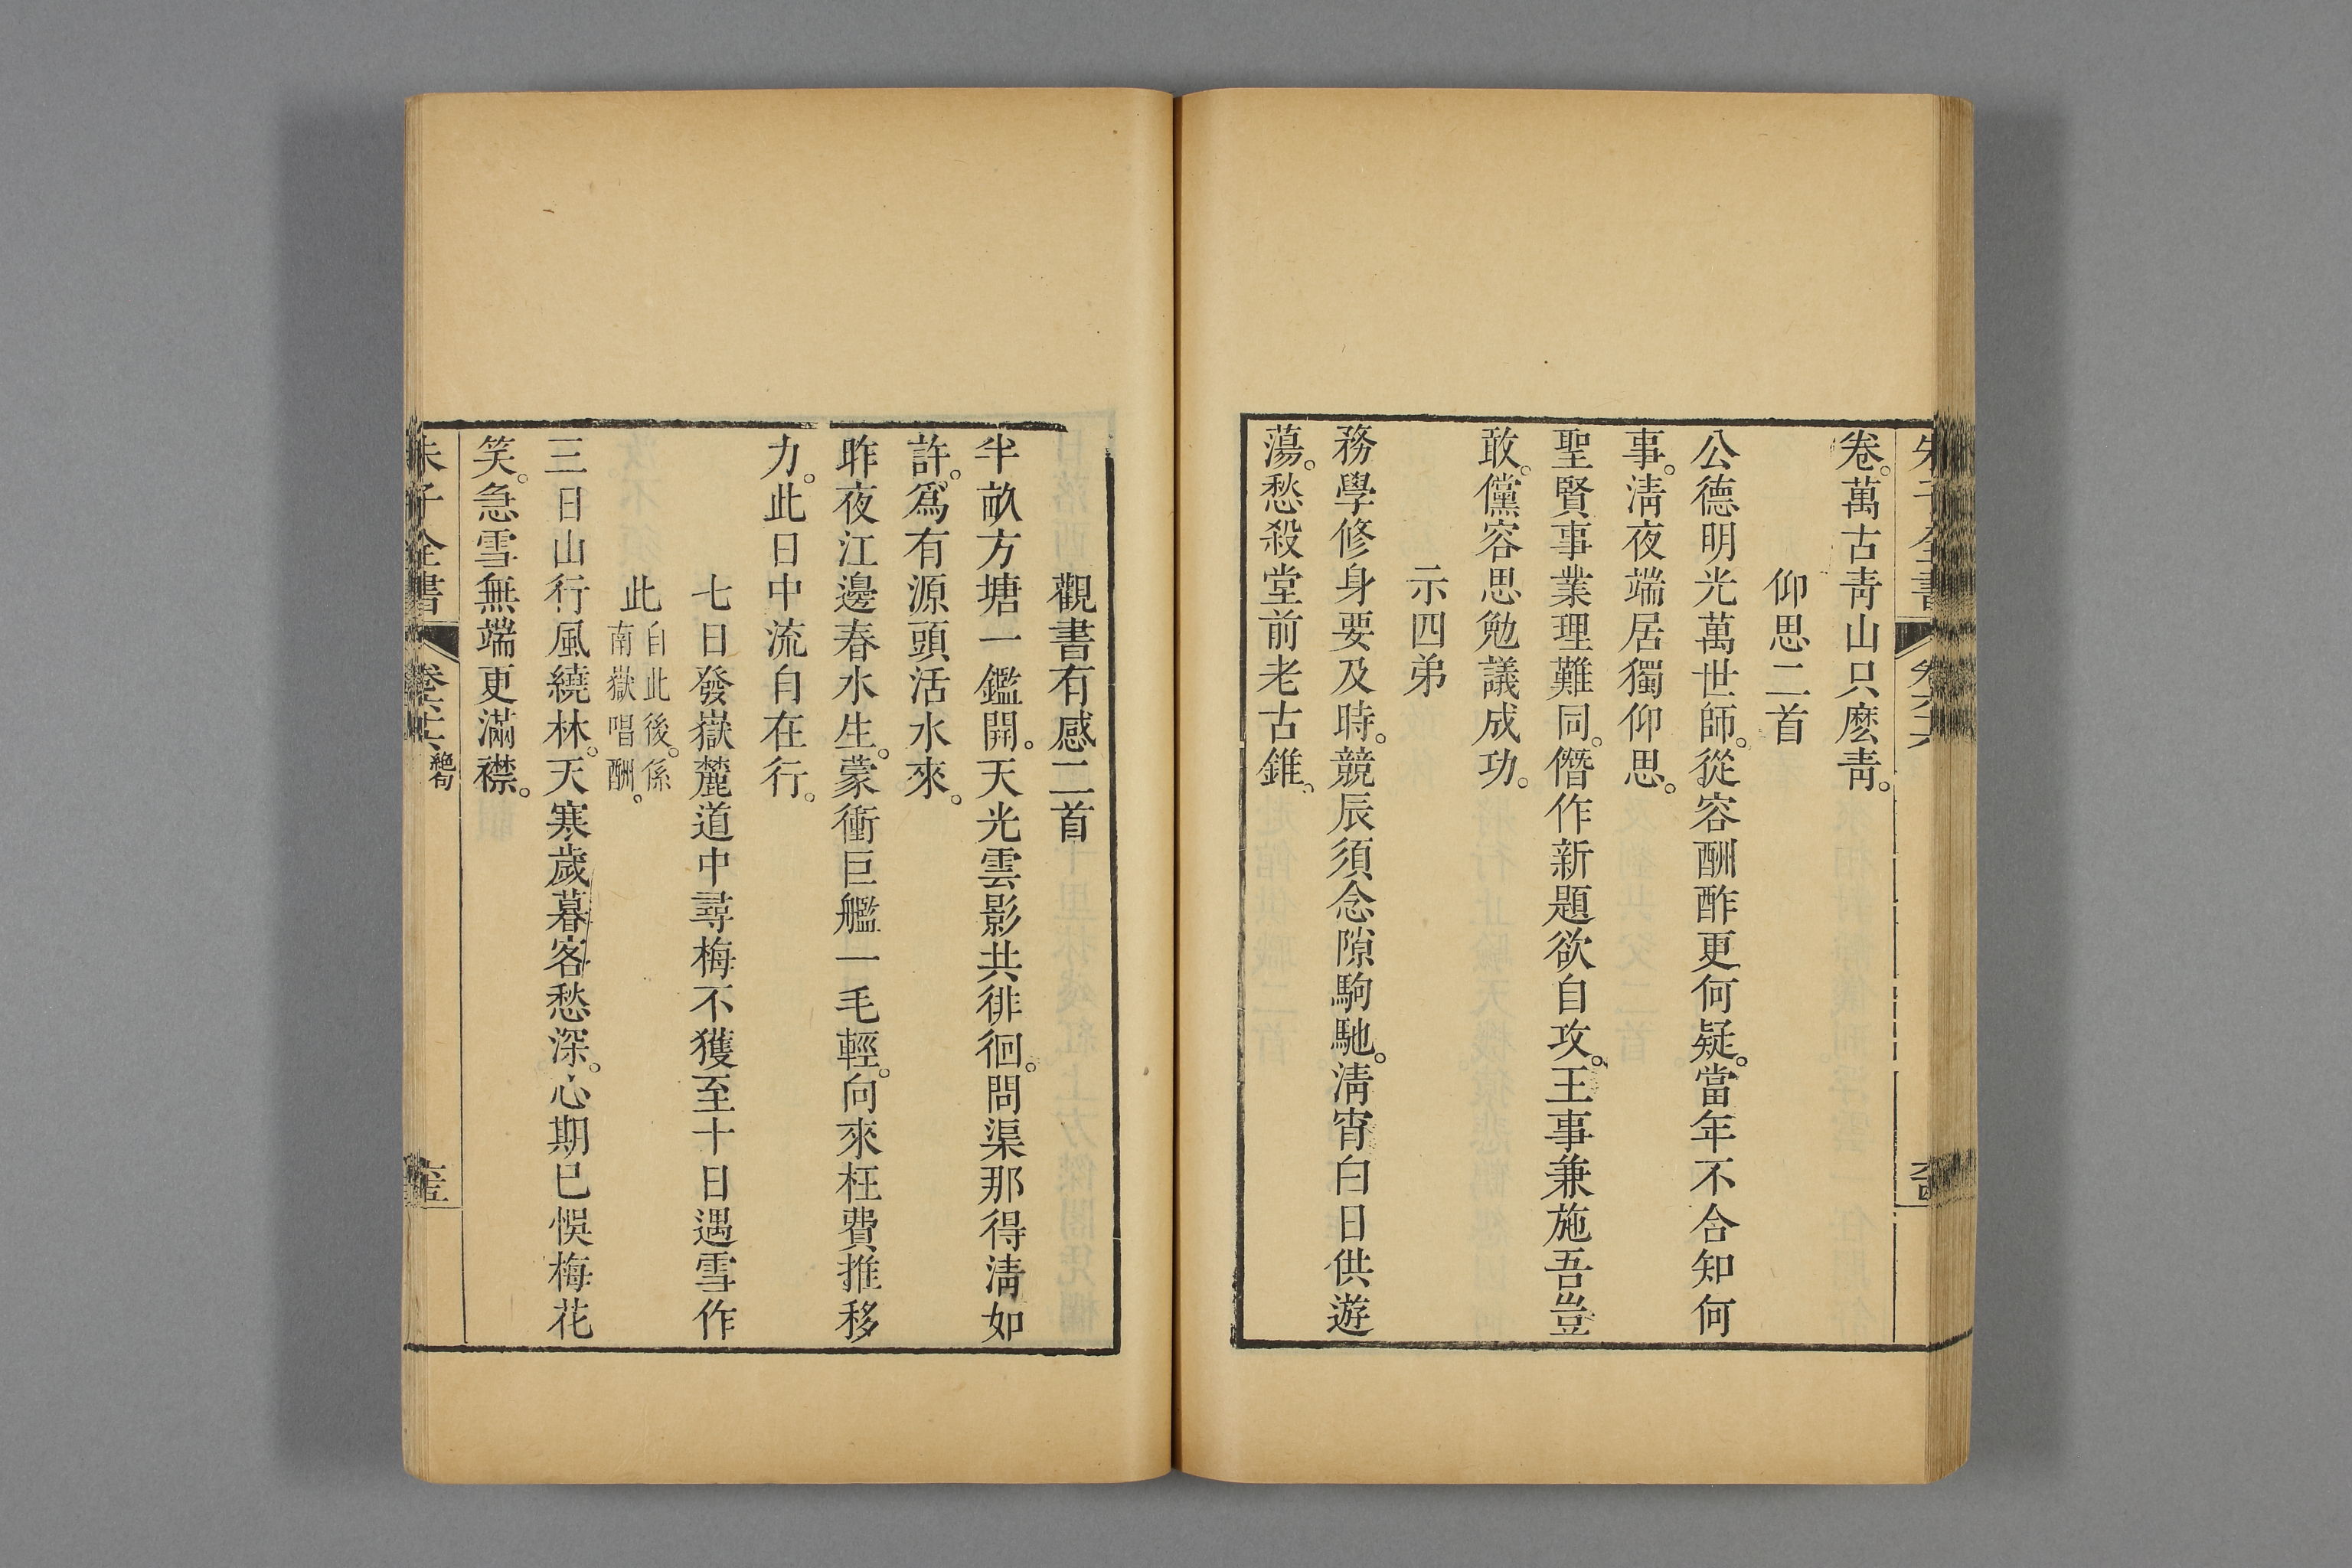 卷。萬古靑山只麽靑。
仰思二首
公德明光萬世師。從容酬酢更何疑。當年不合知何
事。淸夜端居獨仰思。
聖賢事業理難同。僭作新題欲自攻。王事兼施吾豈
敢。儻容思勉議成功。
示四弟
務學修身要及時。競辰須念隙駒馳。淸宵白日供遊
蕩。愁殺堂前老古錐。
觀書有感二首
半畝方塘一鑑開。天光雲影共徘徊。問渠那得淸如
許。爲有源頭活水來。
昨夜江邊春水生。蒙衝巨艦一毛輕。向來枉費推移
力。此日中流自在行。
七日發嶽麓道中尋梅不獲至十日遇雪作
此自此後。係南嶽唱酬。
三日山行風繞林。天寒歲暮客愁深。心期已悞梅花
笑。急雪無端更滿襟。
朱子全書
絕句